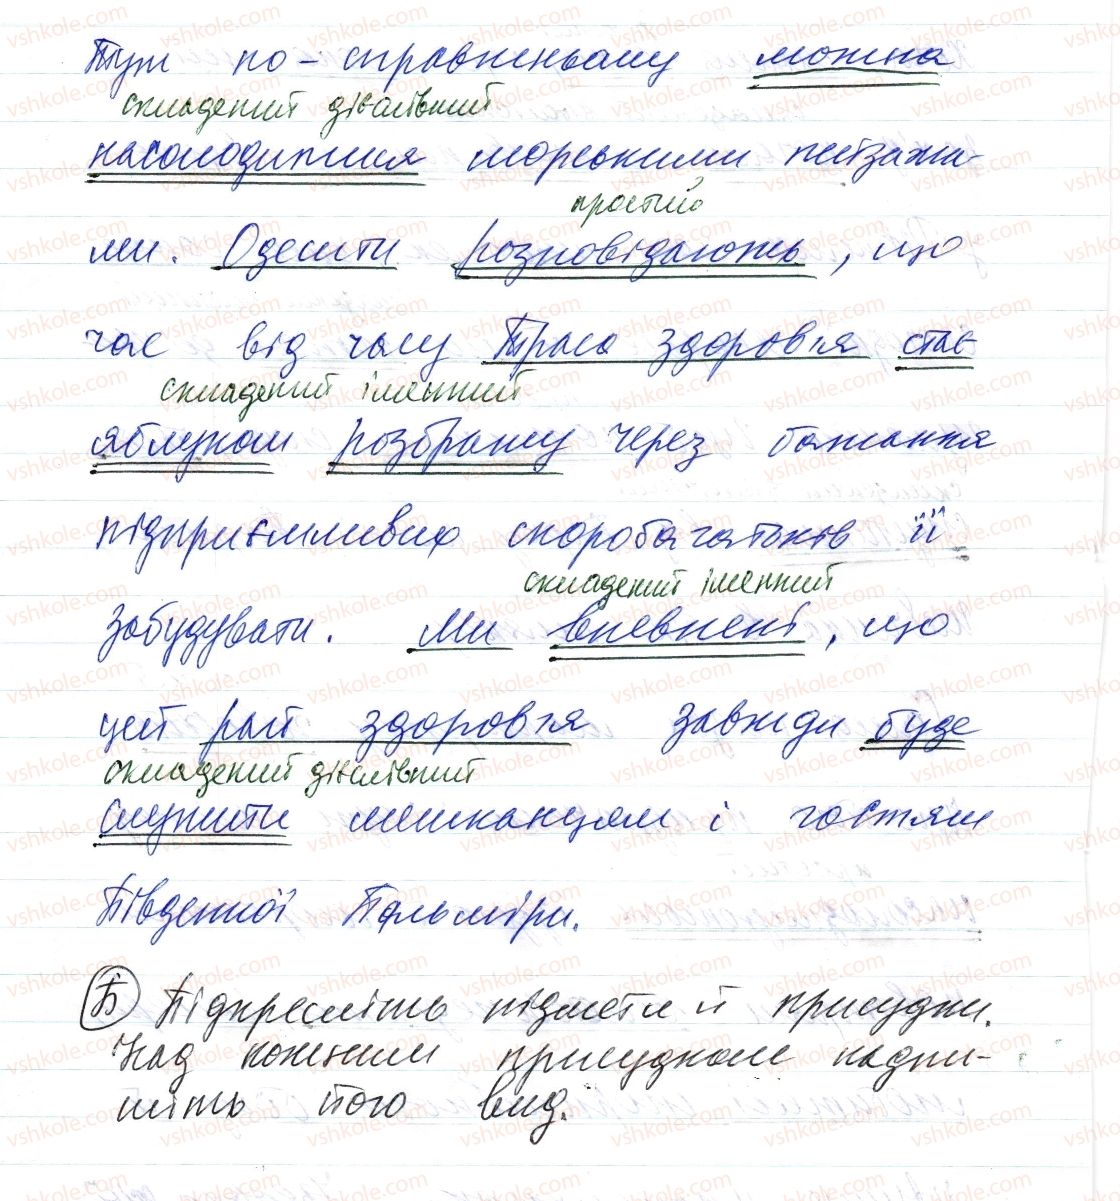 Тут по-справжньому можна
складений дієслівний
насолодитися морськими пейзажа-
простий
ми. Одесити розповідають, що
час від часу Траса здоров'я стає
складений іменний
яблуком розбрату через бажання
підприємливих скоробагатьків її
складений іменний
забудувати. Ми впевнені, що
цей рай здоров'я завжди буде
складений дієслівний
служити мешканцям і гостям
Південної Пальміри.
Б Підкресліть підмети й присудки.
Над кожним присудком надпи-
шіть його вид.